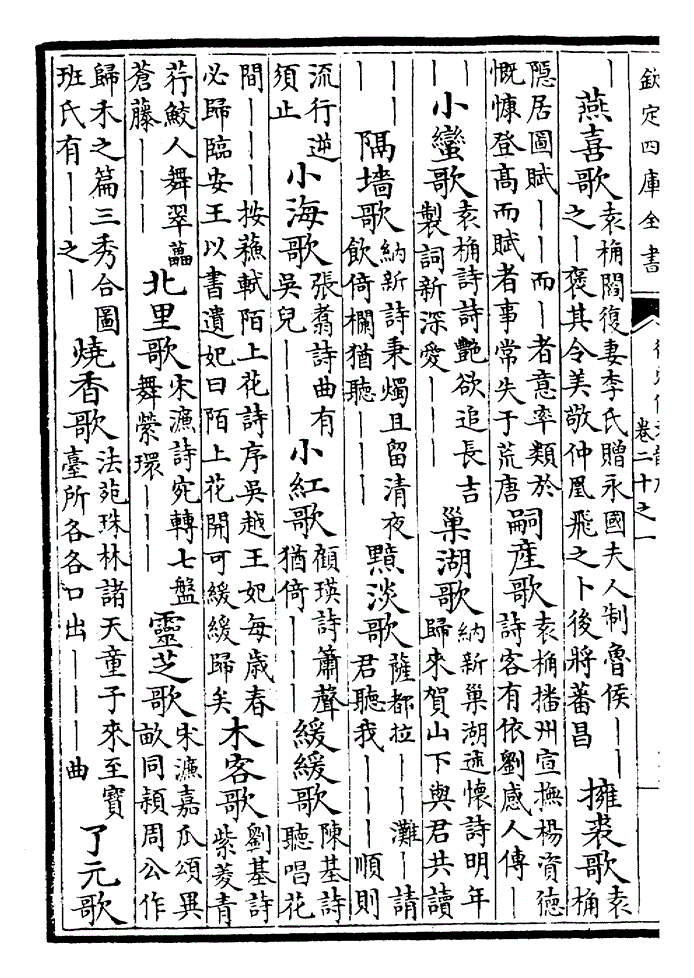 欽定四庫全書
卷二十之一
｜燕喜歌袁桷閻復妻李氏贈永國夫人制魯侯｜｜之｜褒其令美敬仲凰飛之卜後將蕃昌擁裘歌袁桷
隱居圖賦｜｜｜而｜者意率類於慨慷登高而賦者事常失于荒唐嗣産歌袁桷播州宣撫楊資德詩客有依劉感人傳｜
｜｜小蠻歌袁桷詩詩艷欲追長吉製詞新深愛｜｜｜巢湖歌納新巢湖述懷詩明年歸來賀山下與君共讀
｜｜｜｜隔墻歌納新詩秉燭且留清夜飲倚欄猶聽｜｜｜黯淡歌薩都拉｜｜灘｜請君聽我｜｜｜｜順則
流行逆須止小海歌張翥詩曲有吳兒｜｜｜小紅歌顧瑛詩簫聲猶倚｜｜｜緩緩歌陳基詩聽唱花
間｜｜｜按蘓軾陌上花詩序吳越王妃每歲春必歸臨安王以書遺妃曰陌上花開可緩緩歸矣木客歌劉基詩紫菱青
荇鮫人舞翠藟蒼藤｜｜｜北里歌宋濂詩宛轉七盤舞縈環｜｜｜靈芝歌宋濂嘉瓜頌異畝同穎周公作
歸禾之篇三秀合圖班氏有｜｜之｜燒香歌法苑珠林諸天童子來至寶臺所各各口出｜｜｜曲了元歌